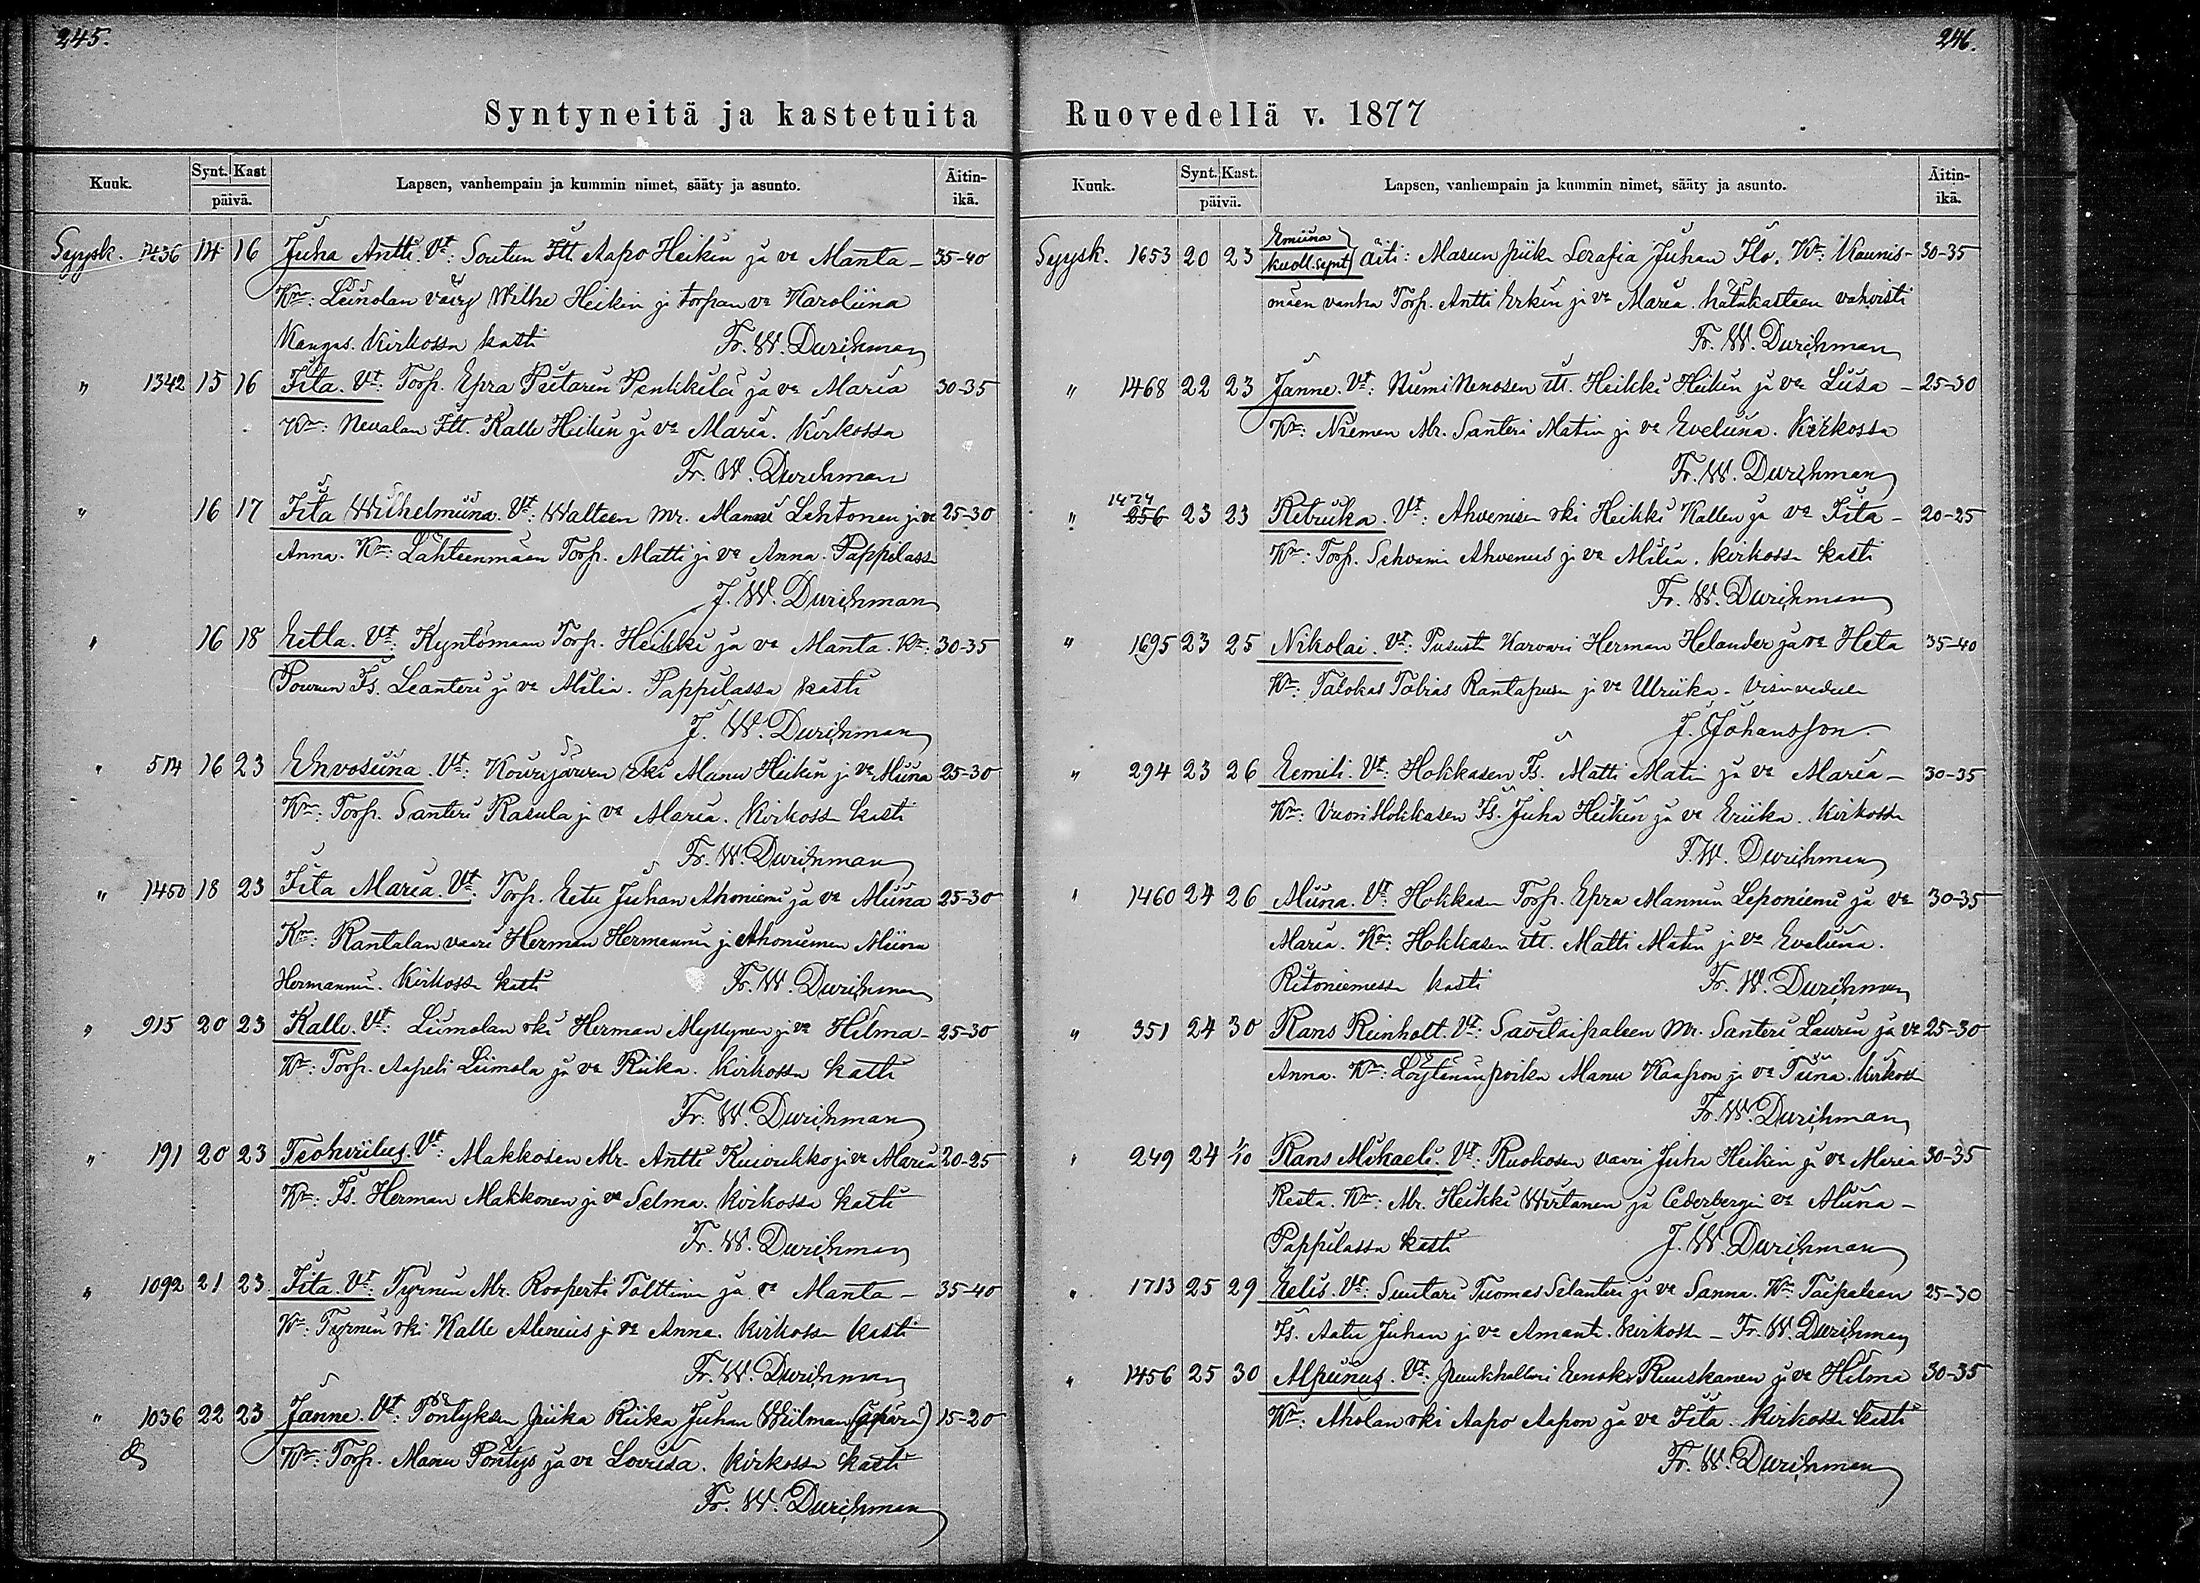 245.
Syntyneitä ja kastetuita
Kuuk. Synt. Kast päivä. Lapsen, vanhempain ja kummin nimet, sääty ja asunto. Äitin-ikä.
Syysk. 1436 14 16 Juha Antti. Vt: Soutun Itt. Aapo Heikin ja va Manta – 35-40
Km: Leinolan Wilhe Heikin ja torpan va Karoliina
Kangas. Kirkossa kasti Fr. W. Durchman
" 1342 15 16 Fita. Vt: Torp. Epra Pietarin Penkkilä ja va Maria 30-35
Km: Nevalan Itt. Kalle Heikin ja va Maria. Kirkossa
Fr. W. Durchman
" 16 17 Fita Wilhelmiina. Vt: Walteen Mr. Manni Lehtonen ja va 25-30
Anna. Km: Lähteenmäen Torp. Matti ja va Anna. Pappilassa
J. W. Durchman
" 16 18 Eetla. Vt: Kyntömaan Torp. Heikki ja va Manta. Km: 30-35
Is. Leanteri ja va Milia. Pappilassa kasti
J. W. Durchman
" 514 16 23 Ehvosiina. Vt: Kourujärven rki Manu Heikin ja va Miina 25-30
Km: Torp. Santeri Rasula ja va Maria. Kirkossa kasti
Fr. W. Durchman
" 1450 18 23 Fita Maria. Vt: Torp. Eetu Juhan Ahoniemi ja va Miina 25-30
Km: Rantalan vaari Herman Hermannin ja Ahoniemen Miina
Hermannin. Kirkossa kasti Fr. W. Durchman
" 915 20 23 Kalle. Vt: Liimolan rki Herman Myllynen ja va Hilma – 25-30
Km: Torp. Aapeli Liimola ja va Riika. Kirkossa kasti
Fr. W. Durchman
" 191 20 23 Teohviilus. Vt: Makkosen Mr. Antti Kuivukko ja va Maria 20-25
Km: Is. Herman Makkonen ja va Selma. Kirkossa kasti
Fr. W. Durchman
" 1092 21 23 Fita. Vt: Tyrnin Mr. Rooperti Talttinen ja va Manta – 35-40
Km: Tyrnin rki Kalle Alenius ja va Anna. Kirkossa kasti
Fr. W. Durchman
" 1036 22 23 Janne. Vt: Pöntyksen piika Riika Juhan Wiilman 15-20
Km: Torp. Manu Pöntys ja va Loviisa. Kirkossa kasti
Fr. W. Durchman
246.
Ruovedellä v. 1877
Kuuk. Synt. Kast. päivä. Lapsen, vanhempain ja kummin nimet, sääty ja asunto. Äitin-ikä.
Syysk. 1653 20 23 Emiina kuoll. synt äiti: Masun piika Serafia Juhan Ilo. Km: Kaunis- 30-35
mäen vanha Torp. Antti Erkin ja va Maria. hätäkasteen vahvisti
Fr. W. Durchman
" 1468 22 23 Janne. Vt: Itt. Heikki Heikin ja va Liisa – 25-30
Km: Niemen Mr. Santeri Matin ja va Eveliina. Kirkossa
Fr. W. Durchman
" 1474 256 23 23 Retriika. Vt: Ahvenisen rki Heikki Kallen ja va Fita – 20-25
Km: Torp. Sehvami Ahvenus ja va Milia. Kirkossa kasti
Fr. W. Durchman
" 1695 23 25 Nikolai. Vt: Karvari Herman Helander ja va Heta 35-40
Km: Talokas Tobias Rantapusa ja va Ulriika. Visuvedellä
J. Johansson.
" 294 23 26 Eemili. Vt: Hokkasen Is. Matti Matin ja va Maria – 30-35
Km: Vuori Hokkasen Is. Juha Heikin ja va Eriika. Kirkossa
F. W. Durchman
" 1460 24 26 Miina. Vt: Hokkasen Torp. Epra Mannun Leponiemi ja va 30-35
Maria. Km: Hokkasen Itt. Matti Matin ja va Eveliina.
Ritoniemessä kasti Fr. W. Durchman
" 351 24 30 Rans Reinholt. Vt: Savitaipaleen Mr. Santeri Laurin ja va 25-30
Anna. Km: Löytänänpoika Manu Kaapon ja va Tiina. Kirkossa
Fr. W. Durchman
" 249 24 1/10 Rans Mikaeli. Vt: Ruokosen vaari Juha Heikin ja va Maria 30-35
Resta. Km: Mr. Heikki Wirtanen ja Cederbergin va Miina –
Pappilassa kasti J. W. Durchman
" 1713 25 29 Eelis. Vt: Suutari Tuomas Selanteri ja va Sanna. Km: Taipaleen 25-30
Is. Aatu Juhan ja va Amanta. Kirkossa – Fr. W. Durchman
" 1456 25 30 Alpiinus. Vt: Eenokki Ruuskanen ja va Hilma 30-35
Km: Aholan rki Aapo Aapon ja va Fita. Kirkossa kasti
Fr. W. Durchman